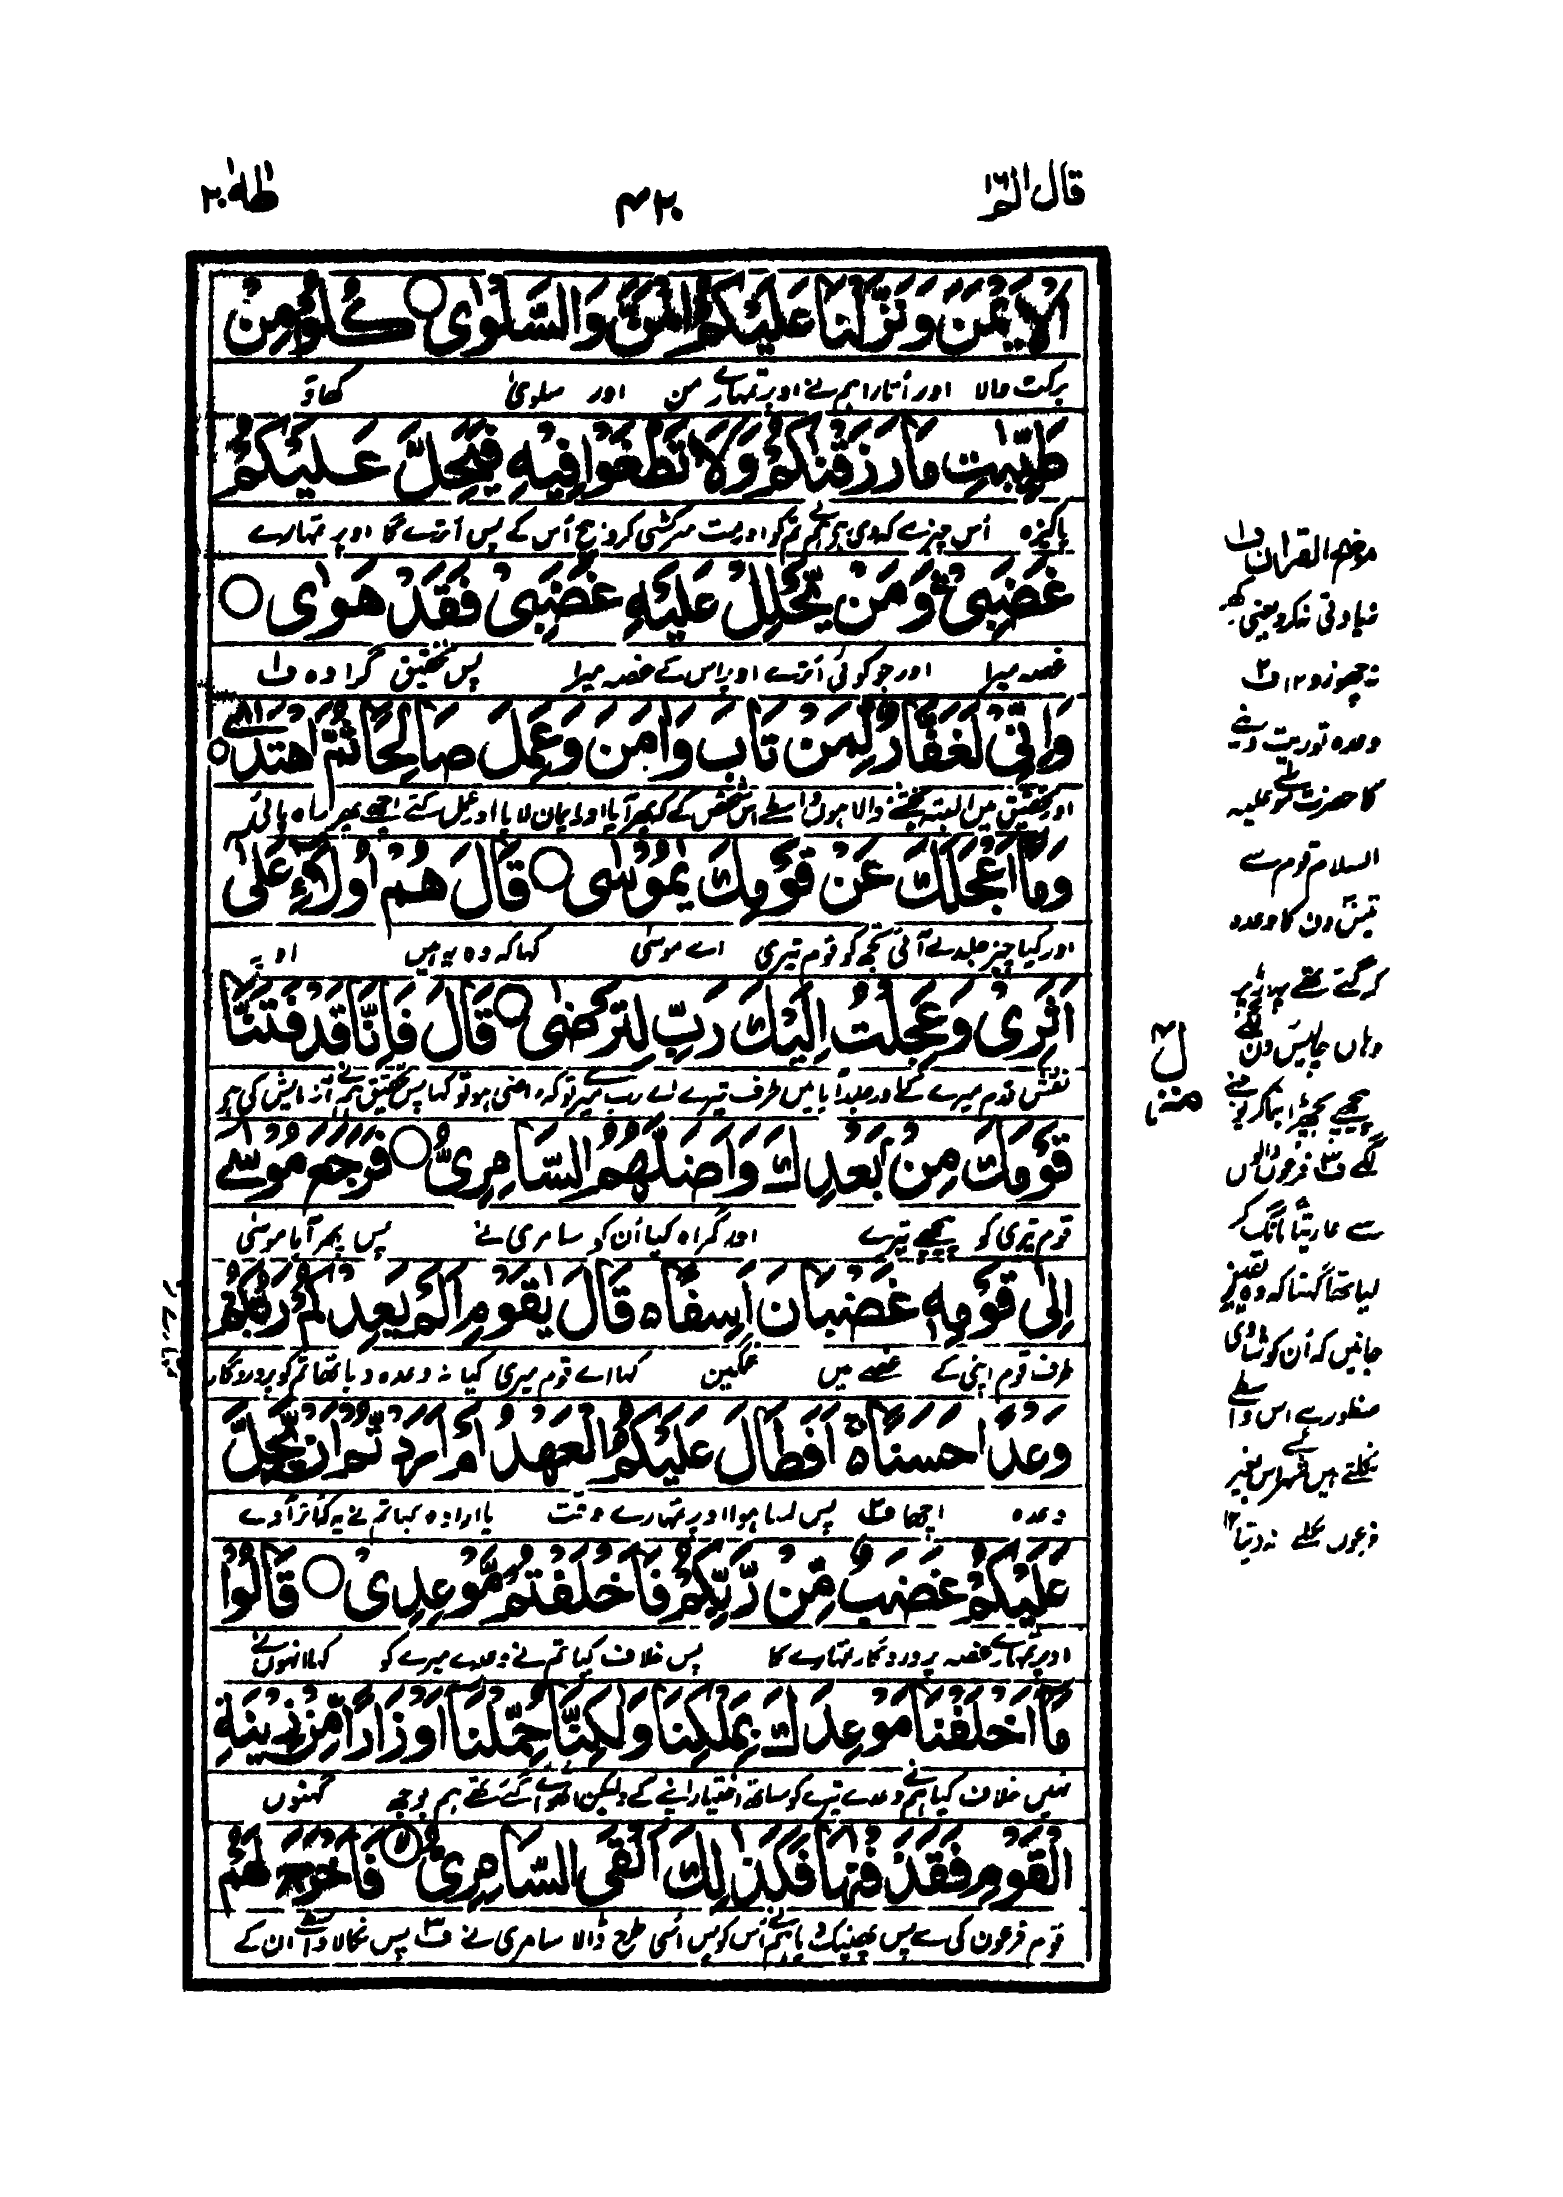 قال الم ١٦
٤٢٠
طٰهٰ ٢٠
الْاَيْمَنَ وَنَزَّلْنَا عَلَيْكُمُ الْمَنَّ وَالسَّلْوٰى ○ كُلُوْا مِنْ
برکت والا اور اُتارا ہم نے اوپر تمہارے من اور سلویٰ کھاؤ
طَيِّبٰتِ مَا رَزَقْنٰكُمْ وَلَا تَطْغَوْا فِيْهِ فَيَحِلَّ عَلَيْكُمْ
پاکیزہ اُس چیز سے کہ دی ہے ہم نے تم کو اور مت سرکشی کرو بیچ اُس کے پس اُترے گا اوپر تمہارے
غَضَبِيْ ۚ وَمَنْ يَّحْلِلْ عَلَيْهِ غَضَبِيْ فَقَدْ هَوٰى ○
غصہ میرا اور جو کوئی اُترے اوپر اس کے غصہ میرا پس تحقیق گرا وہ ف۱
وَاِنِّيْ لَغَفَّارٌ لِّمَنْ تَابَ وَاٰمَنَ وَعَمِلَ صَالِحًا ثُمَّ اهْتَدٰى ○
اور تحقیق میں البتہ بخشنے والا ہوں واسطے اس شخص کے کہ پھر آیا اور ایمان لایا اور عمل کئے اچھے پھر راہ پائی
وَمَآ اَعْجَلَكَ عَنْ قَوْمِكَ يٰمُوْسٰى ○ قَالَ هُمْ اُولَآءِ عَلٰٓى
اور کیا چیز جلد لے آئی تجھ کو قوم تیری اے موسیٰ کہا کہ وہ یہ ہیں اوپر
اَثَرِيْ وَعَجِلْتُ اِلَيْكَ رَبِّ لِتَرْضٰى ○ قَالَ فَاِنَّا قَدْ فَتَنَّا
نقش قدم میرے کے اور جلد آیا میں طرف تیرے اے رب میرے تو کہ راضی ہو تو کہا پس تحقیق ہم نے آزمایش کی ہے
قَوْمَكَ مِنْۢ بَعْدِكَ وَاَضَلَّهُمُ السَّامِرِيُّ ○ فَرَجَعَ مُوْسٰٓى
قوم تیری کو پیچھے تیرے اور گمراہ کیا اُن کو سامری نے پس پھر آیا موسیٰ
اِلٰى قَوْمِهٖ غَضْبَانَ اَسِفًا ۚ قَالَ يٰقَوْمِ اَلَمْ يَعِدْكُمْ رَبُّكُمْ
طرف قوم اپنی کے غصے میں غمگین کہا اے قوم میری کیا نہ وعدہ دیا تھا تم کو پروردگار
وَعْدًا حَسَنًا ۚ اَفَطَالَ عَلَيْكُمُ الْعَهْدُ اَمْ اَرَدْتُّمْ اَنْ يَّحِلَّ
وعدہ اچھا ف۲ پس لمبا ہوا اوپر تمہارے وقت یا ارادہ کیا تم نے یہ کہ اُتر آوے
عَلَيْكُمْ غَضَبٌ مِّنْ رَّبِّكُمْ فَاَخْلَفْتُمْ مَّوْعِدِيْ ○ قَالُوْا
اوپر تمہارے غصہ پروردگار تمہارے کا پس خلاف کیا تم نے وعدے میرے کو کہا انہوں نے
مَآ اَخْلَفْنَا مَوْعِدَكَ بِمَلْكِنَا وَلٰكِنَّا حُمِّلْنَآ اَوْزَارًا مِّنْ زِيْنَةِ
نہیں خلاف کیا ہم نے وعدے تیرے کو ساتھ اختیار اپنے کے ولیکن اٹھوائے گئے تھے ہم بوجھ گہنوں
الْقَوْمِ فَقَذَفْنٰهَا فَكَذٰلِكَ اَلْقَى السَّامِرِيُّ ○ فَاَخْرَجَ لَهُمْ
قوم فرعون کی سے پس پھینک دیا ہم نے اُس کو پس اُسی طرح ڈالا سامری نے ف۳ پس نکالا واسطے ان کے
موضح القرآن ف۱
زیادتی نہ کرو یعنی
نہ چھوڑو ۱۲ ف۲
وعدہ توریت دینے
کا حضرت موسیٰ علیہ
السلام قوم سے
تیس دن کا وعدہ
کر گئے تھے پہاڑ پر
وہاں چالیس دن لگے
پیچھے بچھڑا بنا کر پوجنے
لگے ف۳ فرعون والوں
سے عاریتاً مانگ کر
لیا تھا گہنا کہ وہ
جانیں کہ اُن کو شادی
منظور ہے اس واسطے
نکلتے ہیں شہر اس بغیر
فرعون نکلنے نہ دیتا ۱۲
منزل ٤